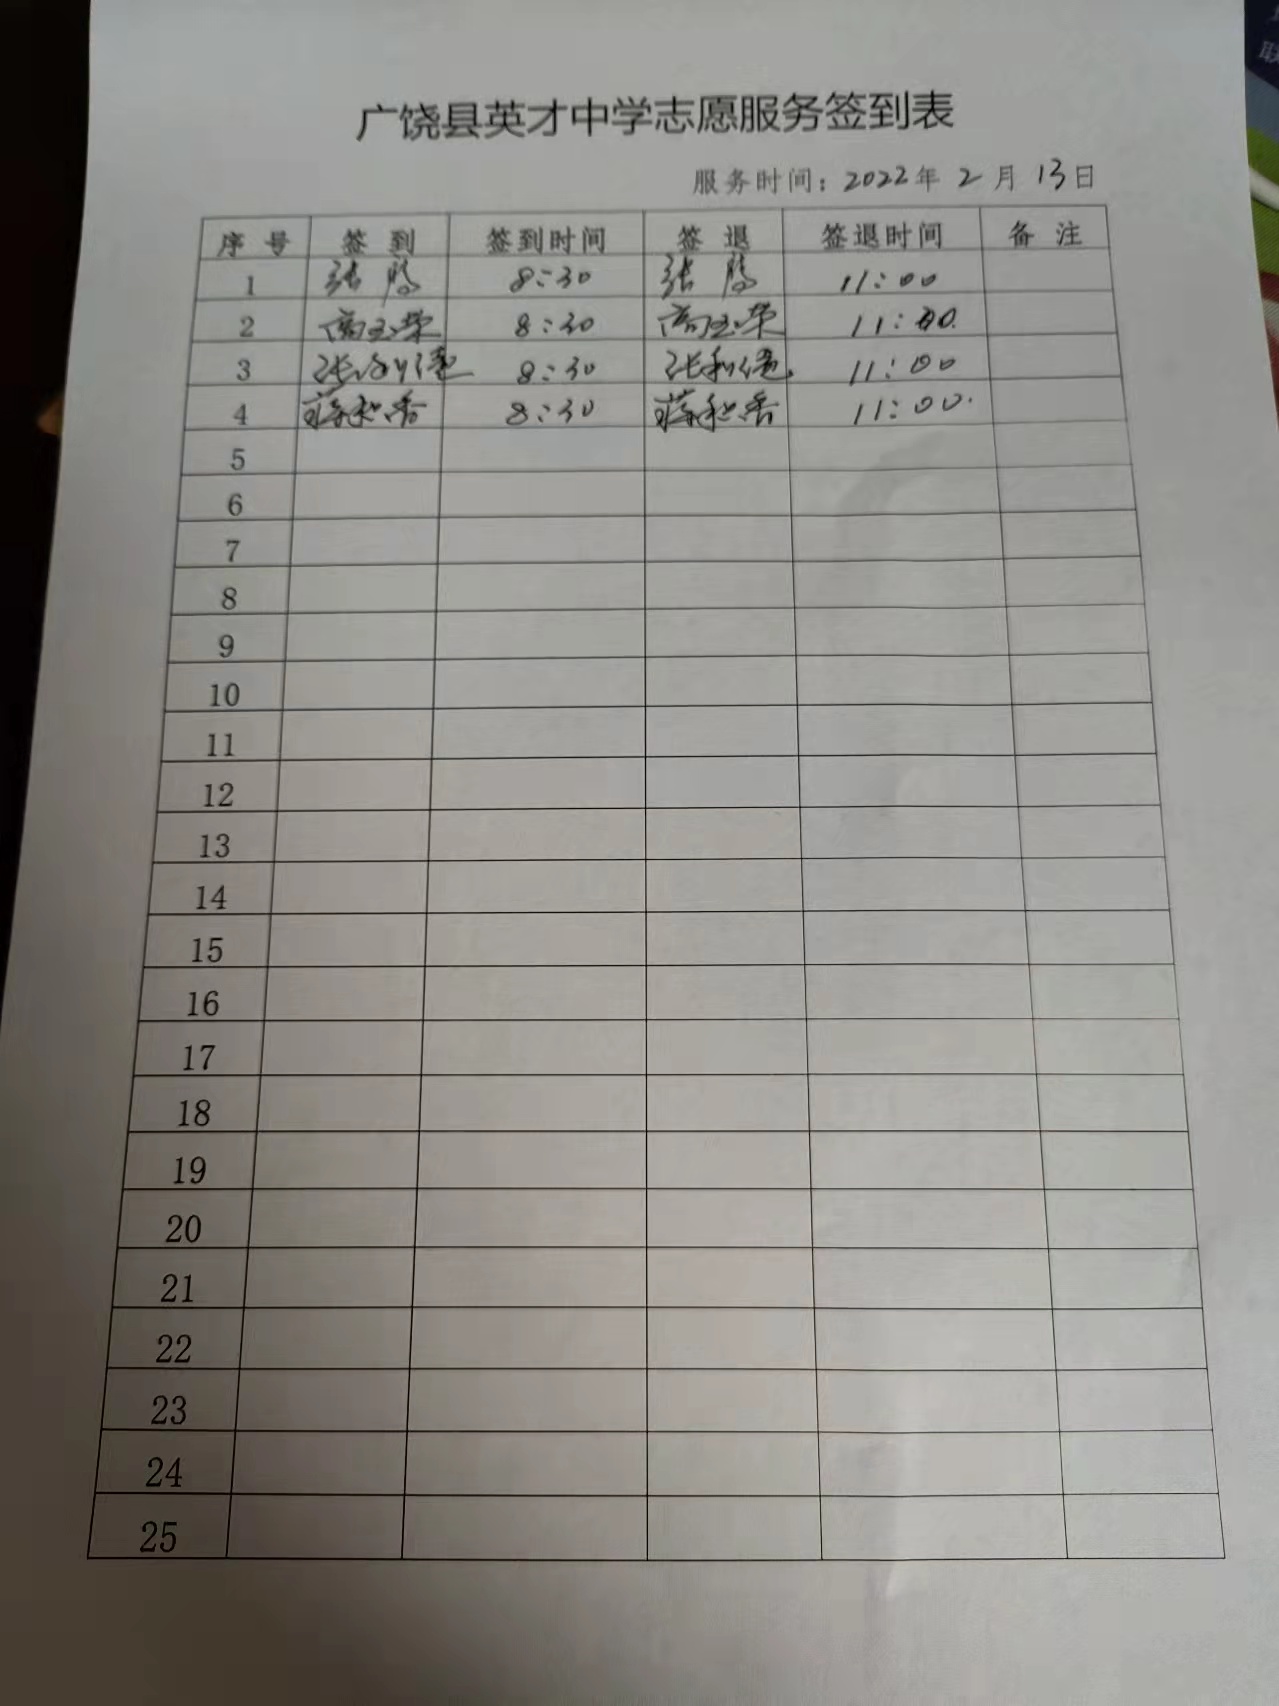 广饶县英才中学志愿服务签到表
服务时间：2022年2月13日
序号 签到 签到时间 签退 签退时间 备注
1 张腾 8:30 张腾 11:00
2 高玉荣 8:30 高玉荣 11:00.
3 8:30 11:00
4 8:30 11:00.
5
6
7
8
9
10
11
12
13
14
15
16
17
18
19
20
21
22
23
24
25